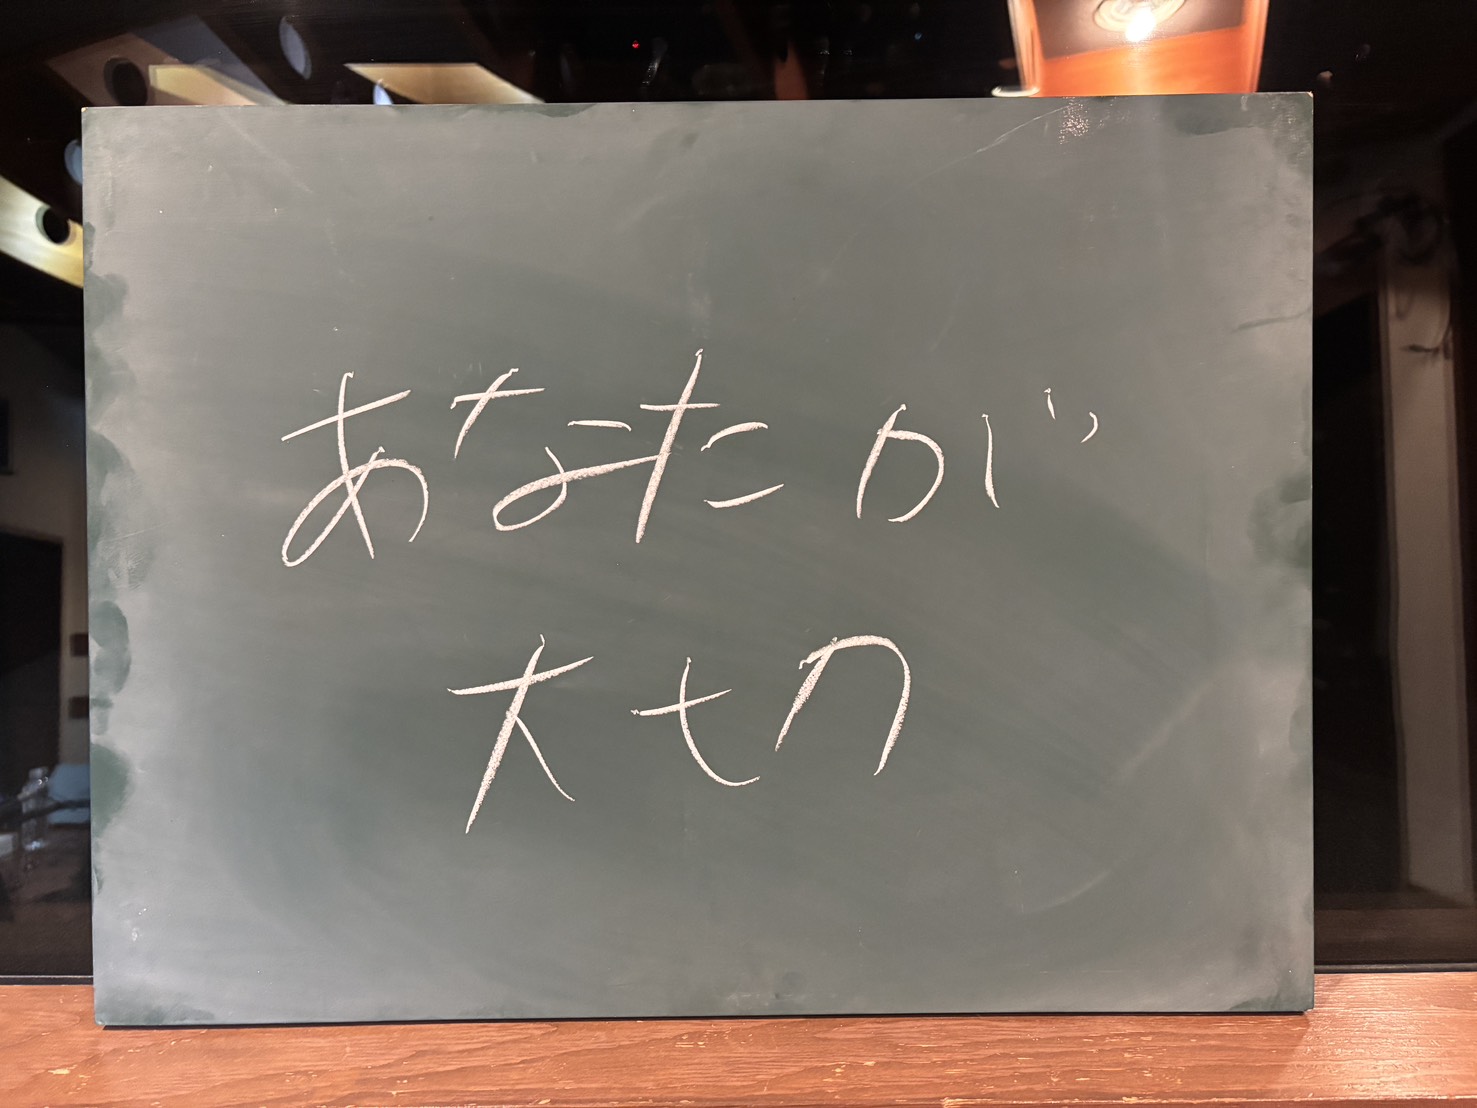 あなたが
大切